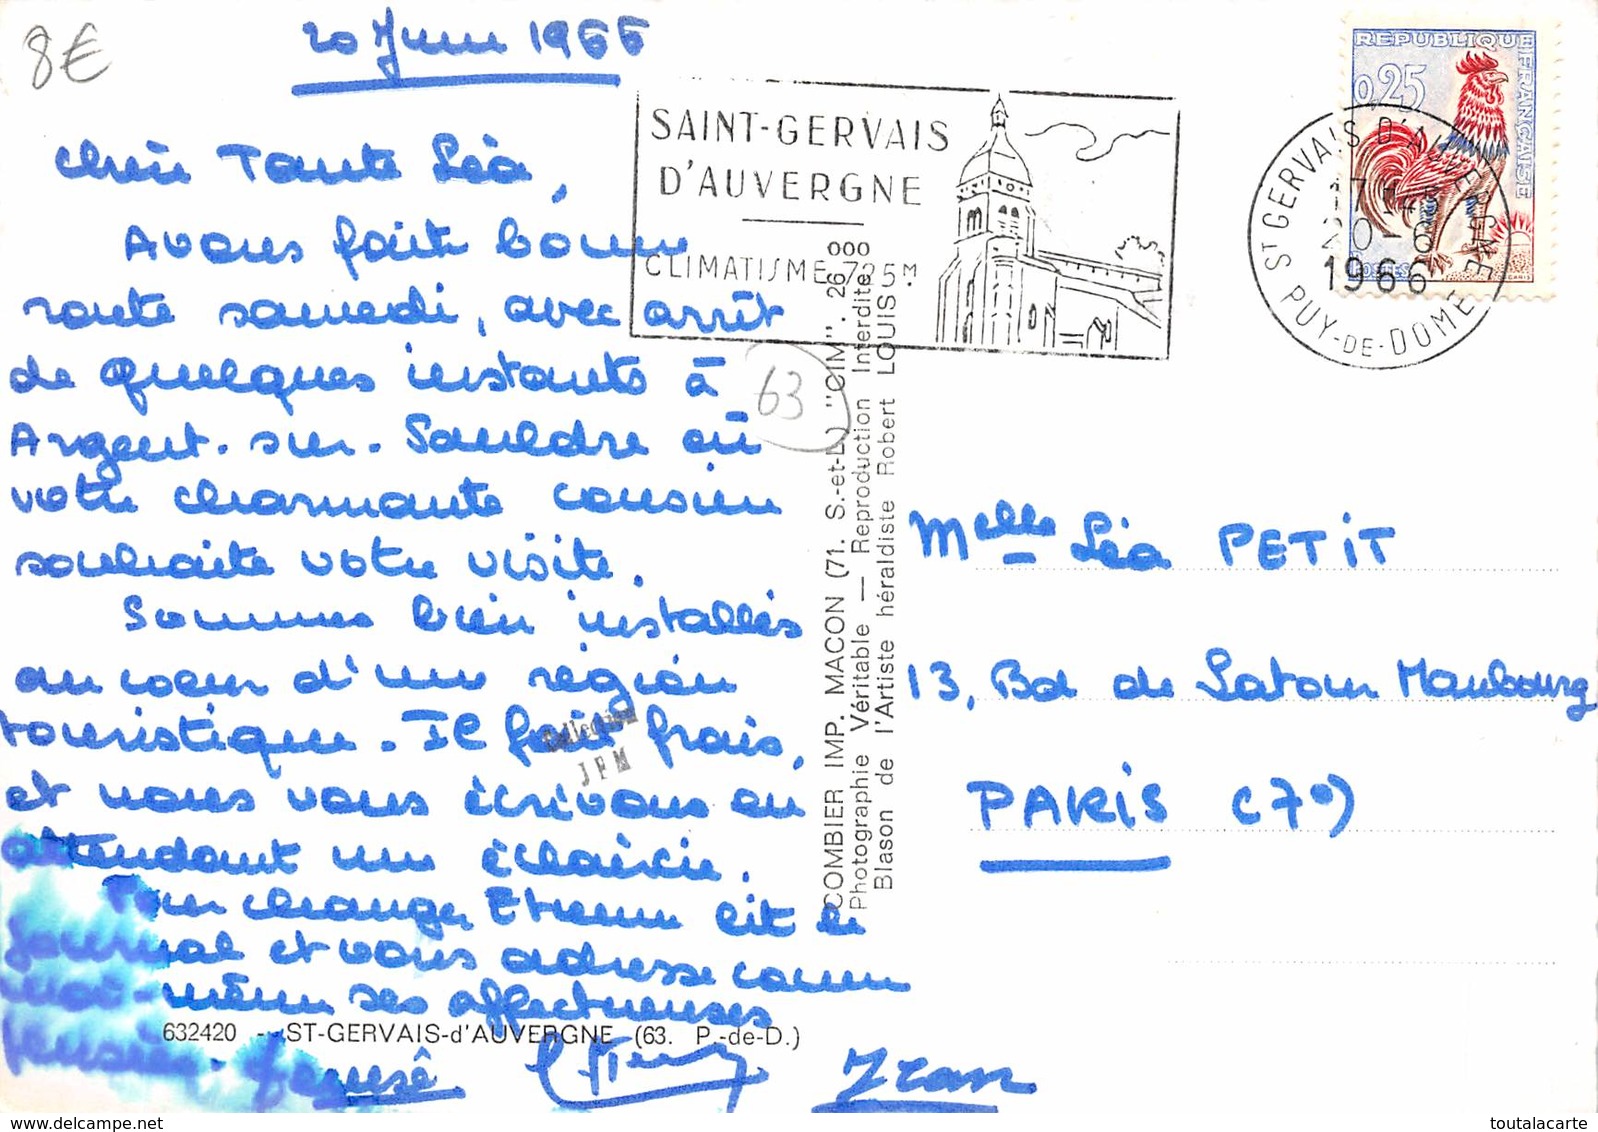 8€
20 Juin 1966
Chère Tante Léa,
Avons fait bonne
route samedi, avec arrêt
de quelques instants à
Argent-sur-Sauldre où
votre charmante cousine
souhaite votre visite.
Sommes bien installés
au coeur d'une région
touristique. Il fait frais,
et nous vous écrivons en
attendant une éclaircie.
Pour changer, Etienne lit le
journal et vous adresse comme
moi-même ses affectueuses
pensées.
Jean
632420 - ST-GERVAIS-d'AUVERGNE (63. P.-de-D.)
Collection
JPM
63
SAINT-GERVAIS
D'AUVERGNE
CLIMATISME 725M
COMBIER IMP. MACON (71. S.-et-L.) "CIM". 26 000
Photographie Véritable — Reproduction Interdite
Blason de l'Artiste héraldiste Robert LOUIS
REPUBLIQUE FRANÇAISE
0,25
POSTES
ST GERVAIS D'AUVERGNE
1966
PUY-DE-DOME
Melle Léa PETIT
13, Bd de Latour Maubourg
PARIS (7e)
toutalacarte